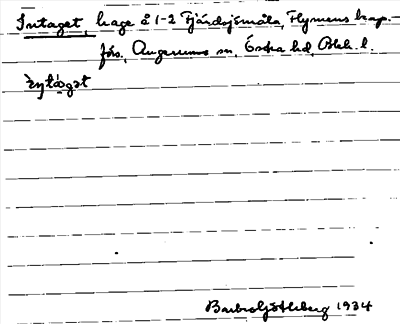 Intaget, hage å 1-2 Fjärdsjömåla, Flymens kap.-
förs., Augerums sn, Östra hd, Blek. l.
Barbro Göthberg 1934